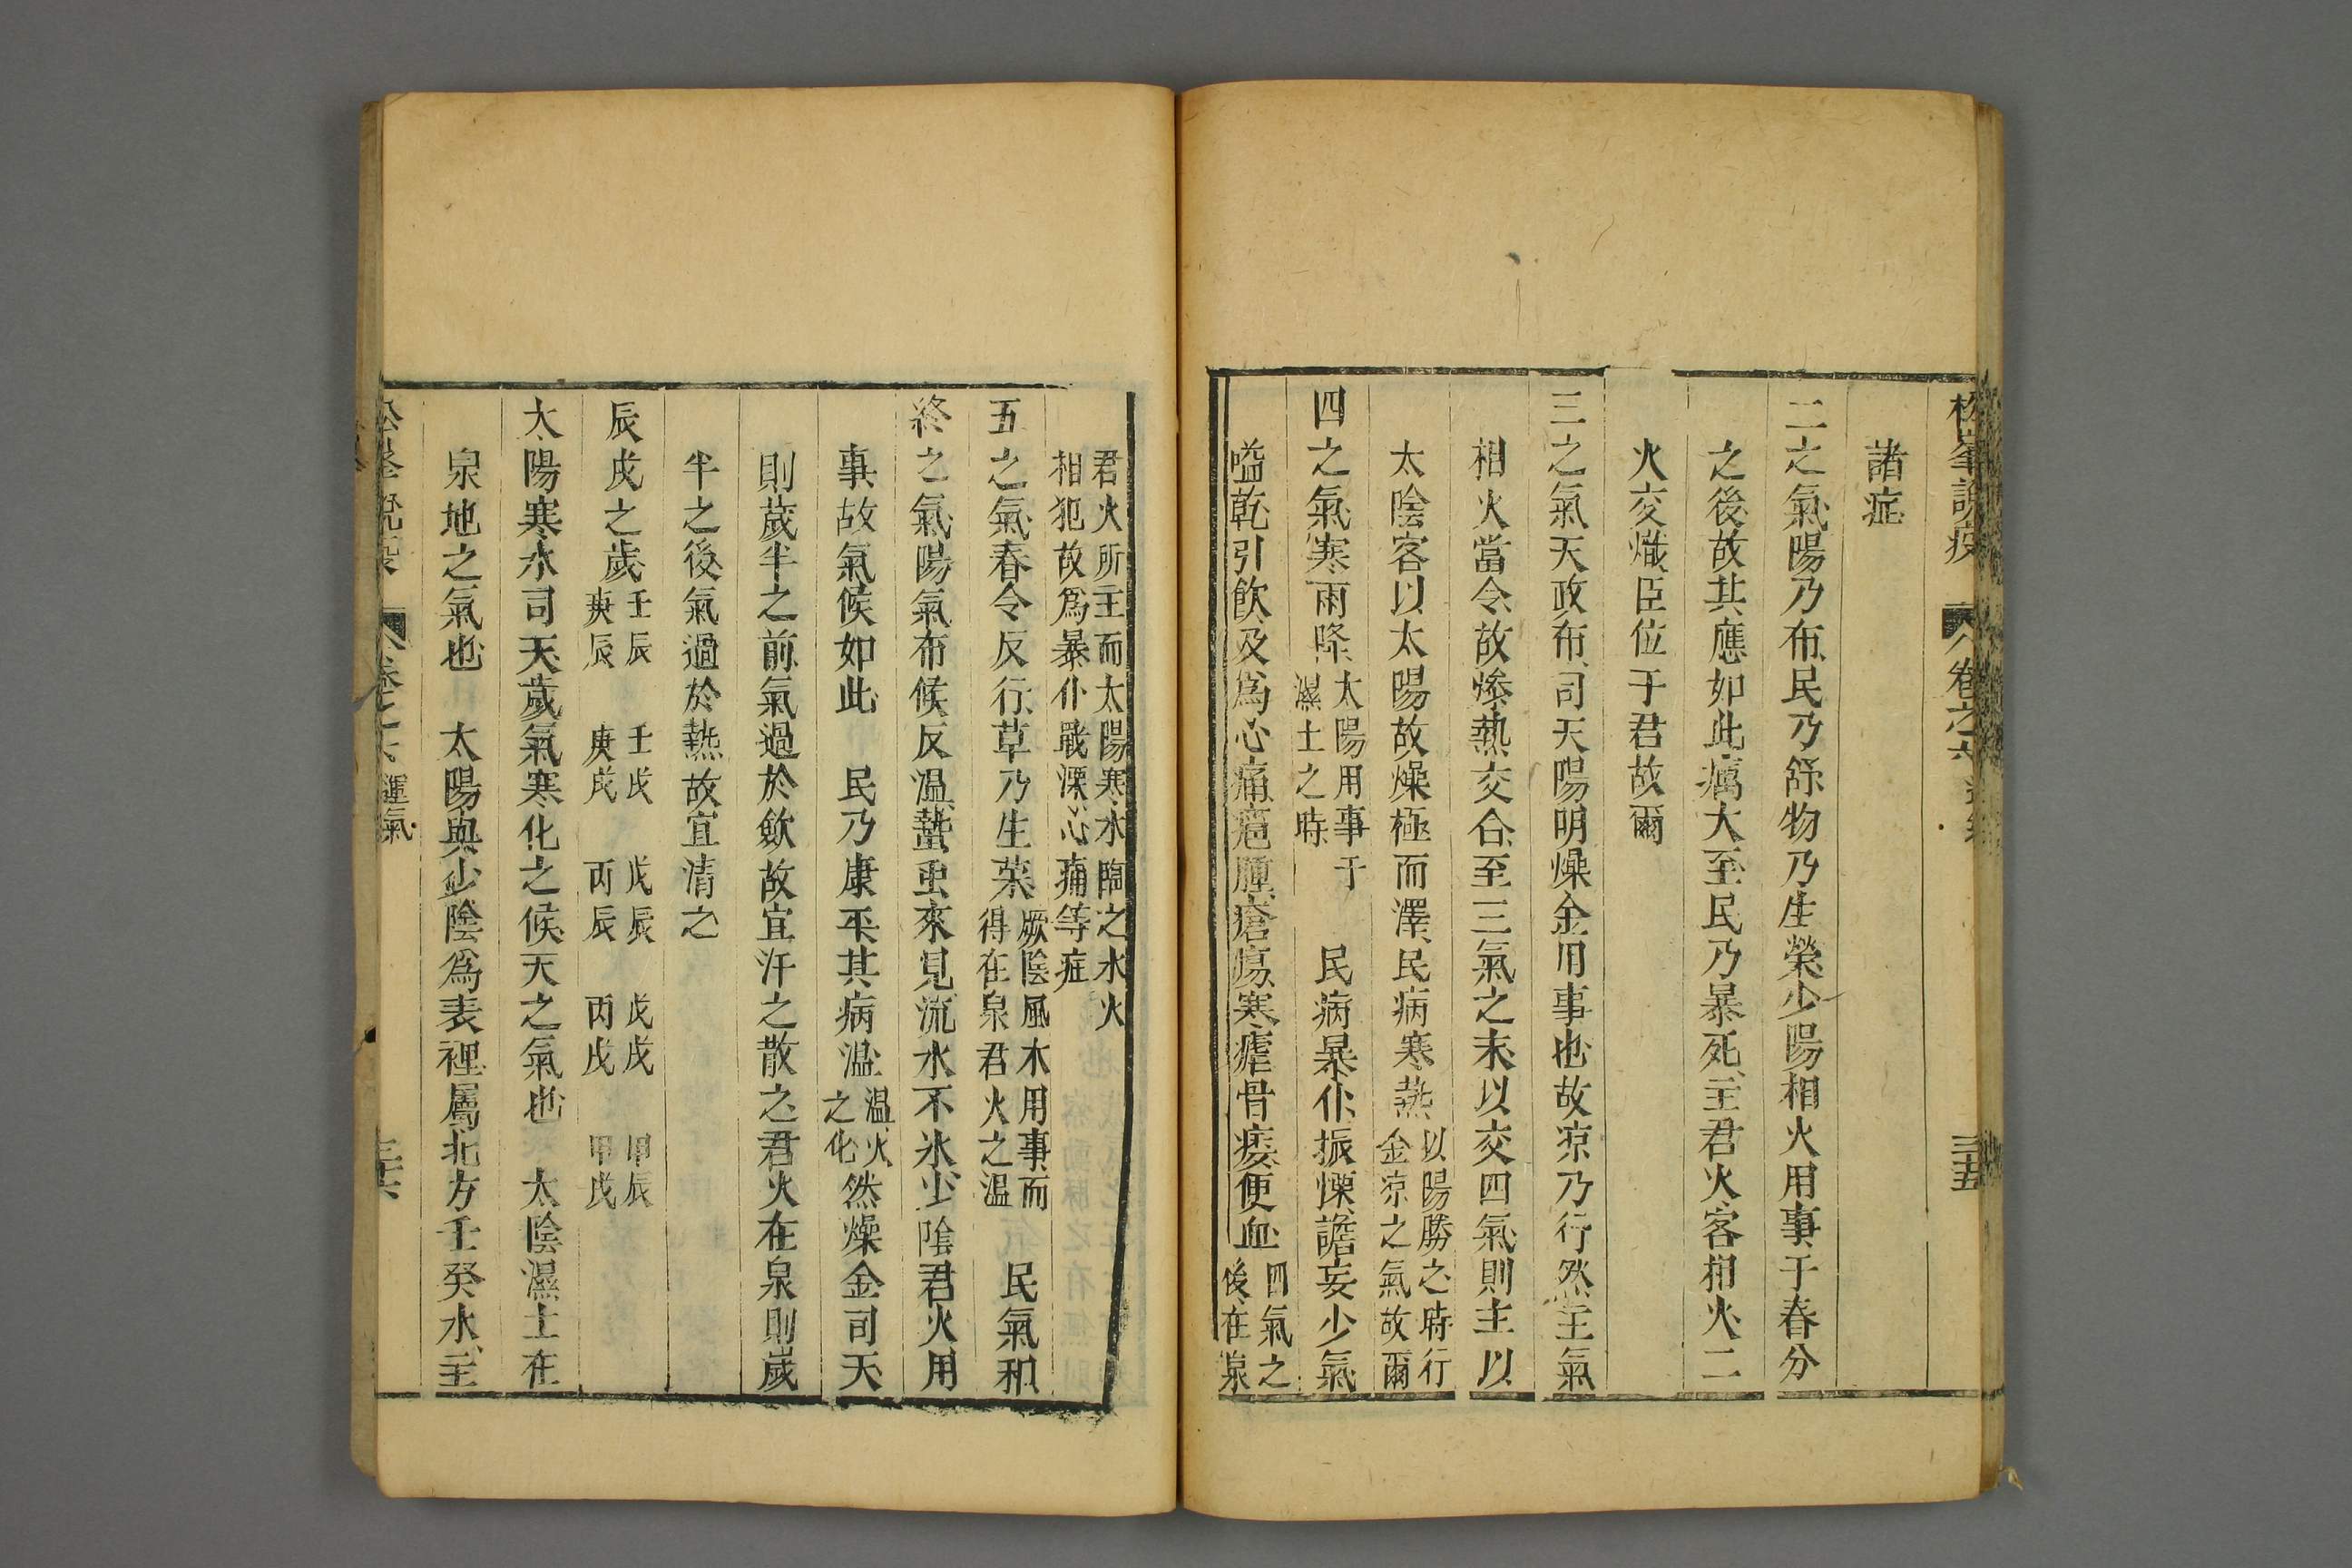 諸症
二之氣陽乃布民乃舒物乃生榮少陽相火用事于春分
之後故其應如此癘大至民乃暴死主君火客相火二
火交熾臣位于君故爾
三之氣天政布司天陽明燥金用事也故凉乃行然主氣
相火當令故燥熱交合至三氣之末以交四氣則主以
太陰客以太陽故燥極而澤民病寒熱以陽勝之時行金凉之氣故爾
四之氣寒雨降太陽用事于濕土之時民病暴仆振慄譫妄少氣
嗌乾引飲及爲心痛癰腫瘡瘍寒瘧骨痿便血四氣之後在泉
君火所主而太陽寒水臨之水火相犯故爲暴仆戰慄心痛等症
五之氣春令反行草乃生榮厥陰風木用事而得在泉君火之溫民氣和
終之氣陽氣布候反溫蟄虫來見流水不氷少陰君火用
事故氣候如此民乃康平其病溫溫火之化然燥金司天
則歲半之前氣過於歛故宜汗之散之君火在泉則歲
半之後氣過於熱故宜清之
辰戌之歲壬辰壬戌戊辰戊戌甲辰庚辰庚戌丙辰丙戌甲戌
太陽寒水司天歲氣寒化之候天之氣也太陰濕土在
泉地之氣也太陽與少陰爲表裡屬北方壬癸水主
卷之六運氣
三十六